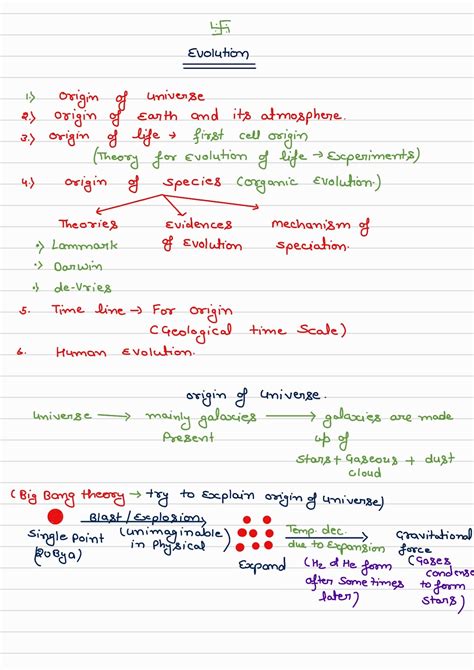 卐
Evolution
1.) origin of universe
2.) origin of Earth and its atmosphere.
3.) origin of life → first cell origin
(Theory for Evolution of life → Experiments)
4.) origin of species (organic Evolution.)
Theories Evidences of Evolution mechanism of speciation.
·) Lammark
·) Darwin
·) de-Vries
5. Time line → For origin
(Geological time Scale)
6. Human Evolution.
origin of universe.
universe → mainly galaxies Present → galaxies are made up of
stars + Gaseous + dust cloud
(Big Bang theory → try to Explain origin of universe)
Single Point (20Bya) Blast/Explosion (unimaginable in Physical) Expand Temp. dec. due to Expansion (H2 & He form after Sometimes later) Gravitational force (Gases condense to form stars)